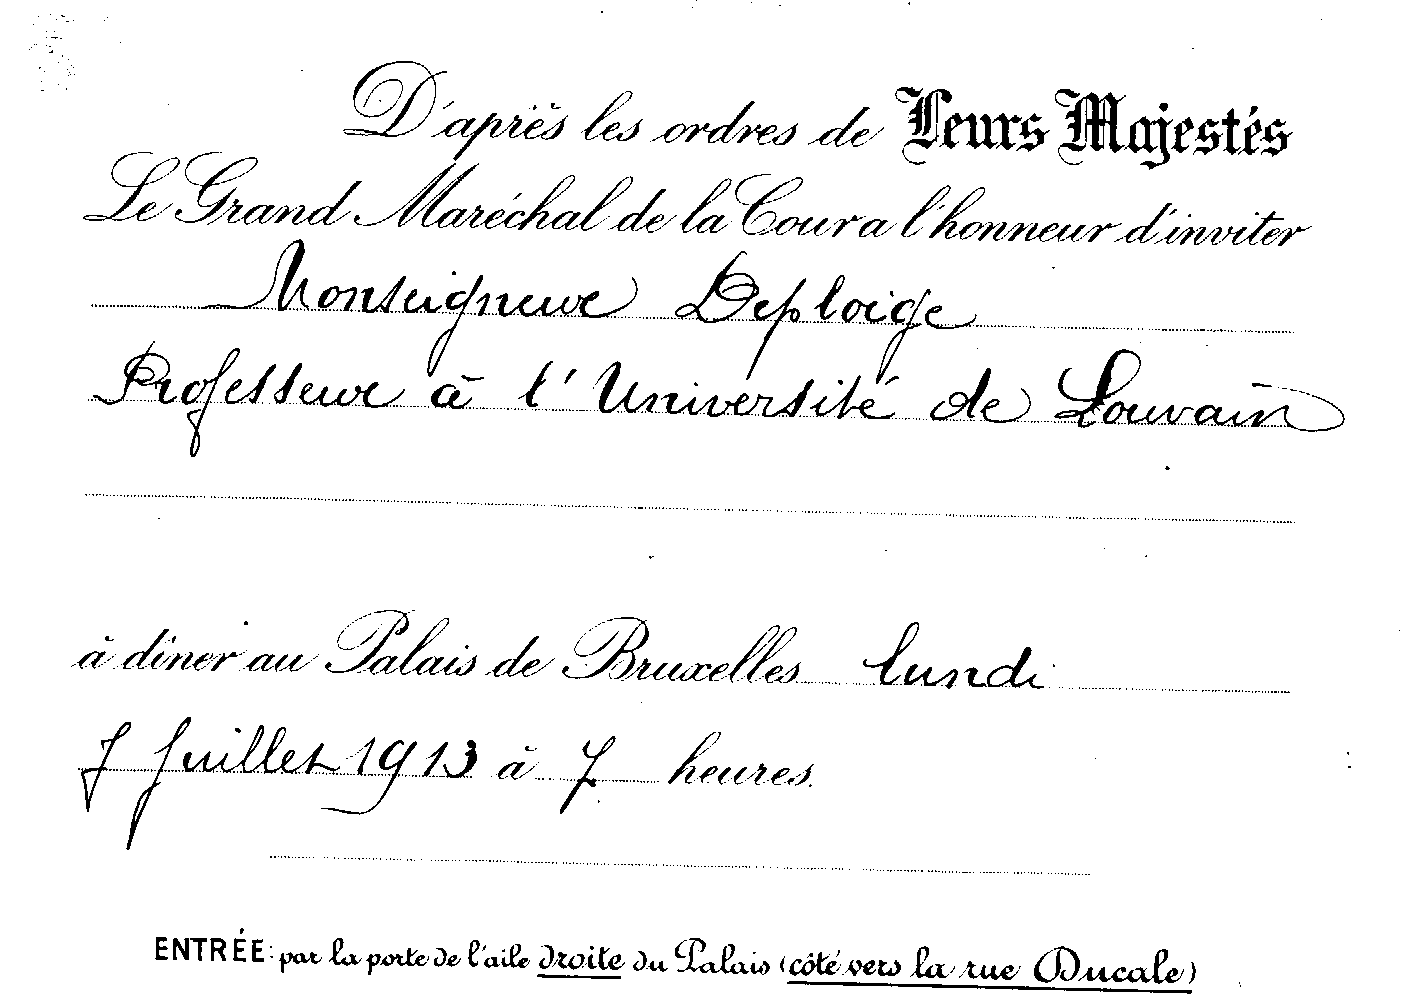 D'après les ordres de Leurs Majestés
Le Grand Maréchal de la Cour a l'honneur d'inviter
Monseigneur Deploige
Professeur à l'Université de Louvain
à dîner au Palais de Bruxelles lundi
7 Juillet 1913 à 7 heures.
ENTRÉE: par la porte de l'aile droite du Palais (côté vers la rue Ducale)